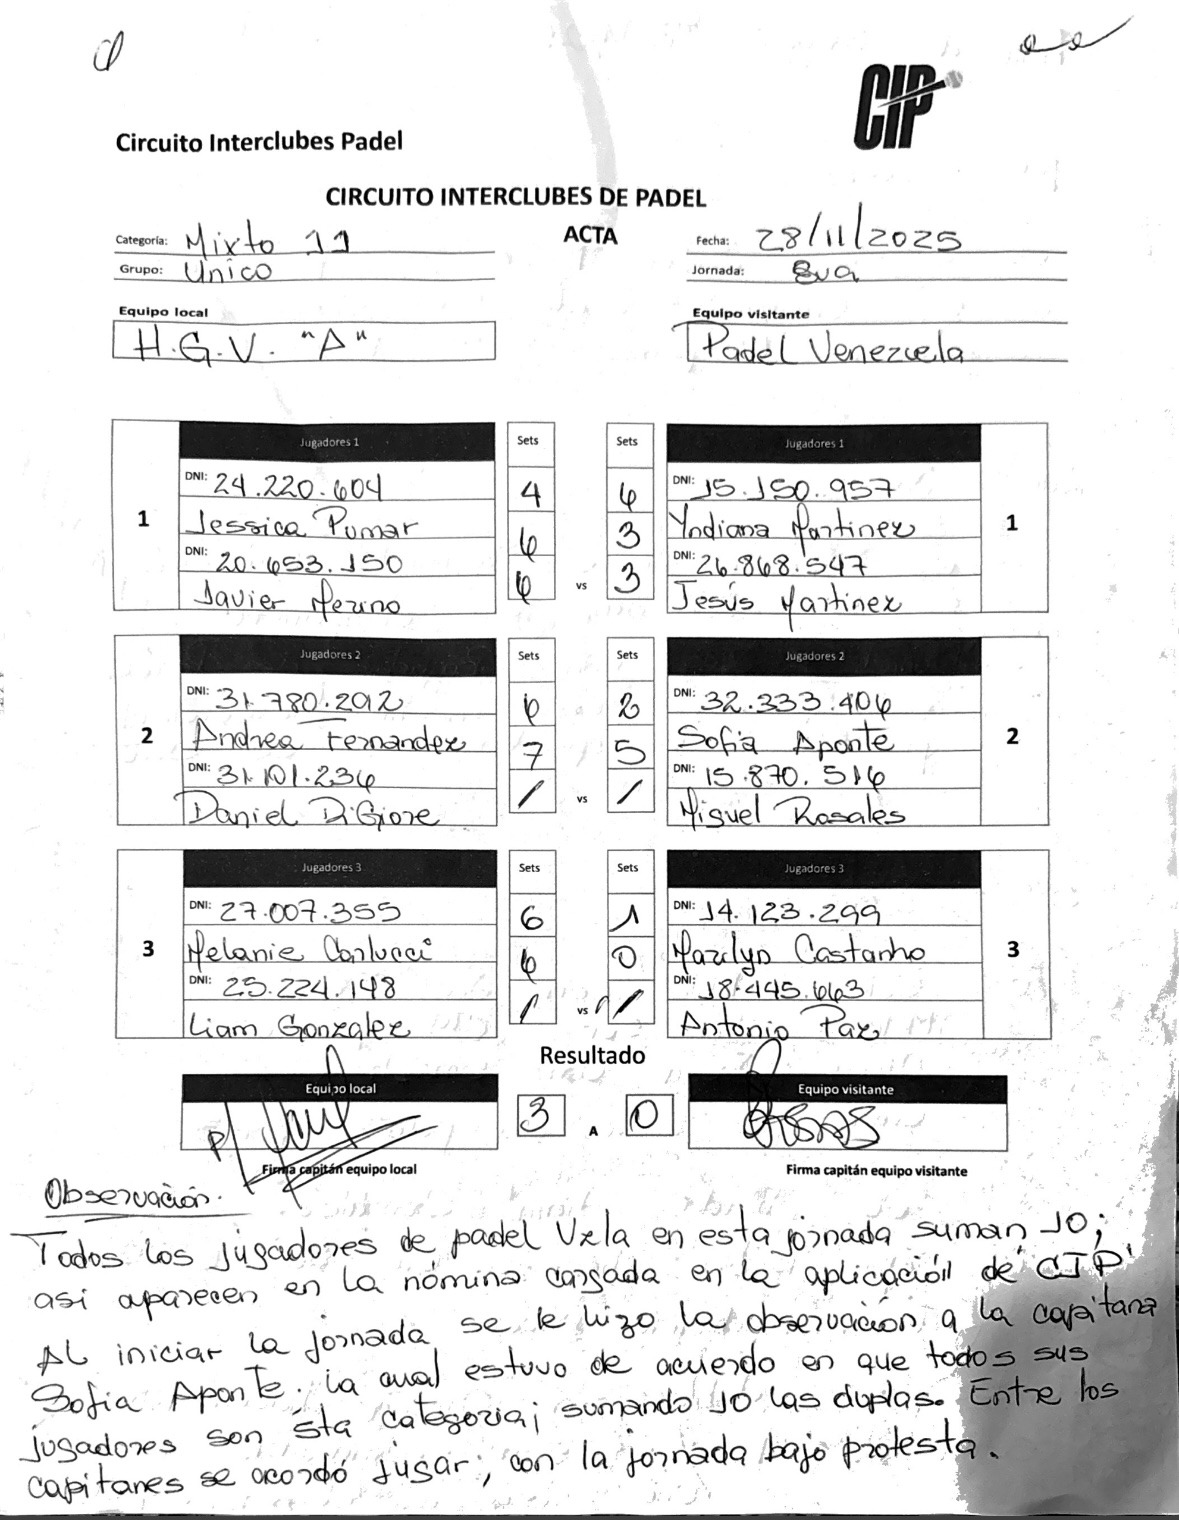 CIP
Circuito Interclubes Padel
CIRCUITO INTERCLUBES DE PADEL
ACTA
Categoría: Mixto 11
Fecha: 28/11/2025
Grupo: Unico
Jornada: 8va
Equipo local
Equipo visitante
H.G.V. "A"
Padel Venezuela
1
Jugadores 1
Sets
Sets
Jugadores 1
1
DNI: 24.220.604
4
6
DNI: 15.150.957
Jessica Pumar
6
3
Yndiana Martinez
DNI: 20.653.150
6
vs
3
DNI: 26.868.547
Javier Merino
Jesús Martinez
2
Jugadores 2
Sets
Sets
Jugadores 2
2
DNI: 31.780.292
6
2
DNI: 32.333.406
Andrea Fernandez
7
5
Sofia Aponte
DNI: 31.101.236
/
vs
/
DNI: 15.870.516
Daniel DiGiore
Miguel Rosales
3
Jugadores 3
Sets
Sets
Jugadores 3
3
DNI: 27.007.355
6
1
DNI: 14.123.299
Melanie Carlucci
6
0
Marilyn Castanho
DNI: 25.224.148
/
vs
/
DNI: 18.445.663
Liam Gonzalez
Antonio Paz
Resultado
Equipo local
3
A
0
Equipo visitante
Firma capitán equipo local
Firma capitán equipo visitante
Observación.
Todos los jugadores de padel Vzla en esta jornada suman 10;
asi aparecen en la nómina cargada en la aplicación de CIP
AL iniciar la jornada se le hizo la observación a la capitana
Sofia Aponte. la cual estuvo de acuerdo en que todos sus
jugadores son ésta categoria; sumando 10 las duplas. Entre los
capitanes se acordó jugar, con la jornada bajo protesta.